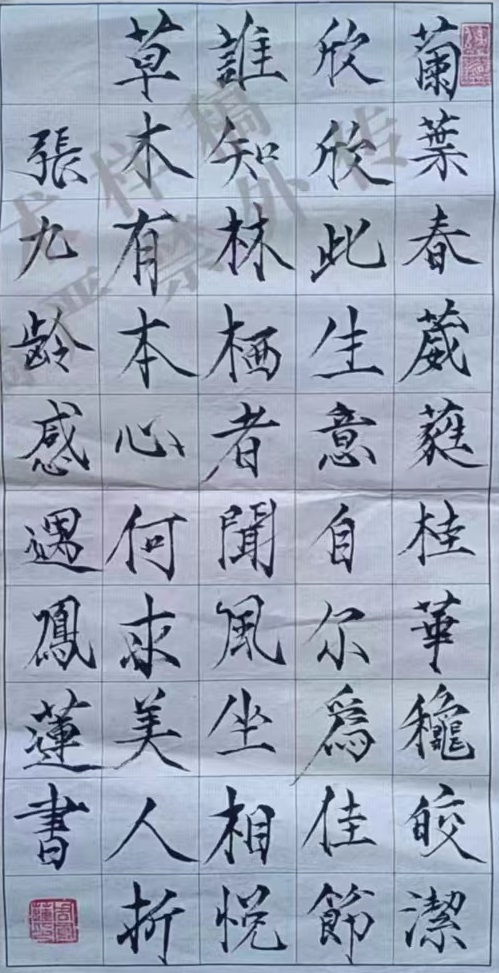 蘭葉春葳蕤桂華龝皎潔
欣欣此生意自尔爲佳節
誰知林栖者聞風坐相悅
草木有本心何求美人折
張九齡感遇鳳蓮書
术样稿
严禁外传